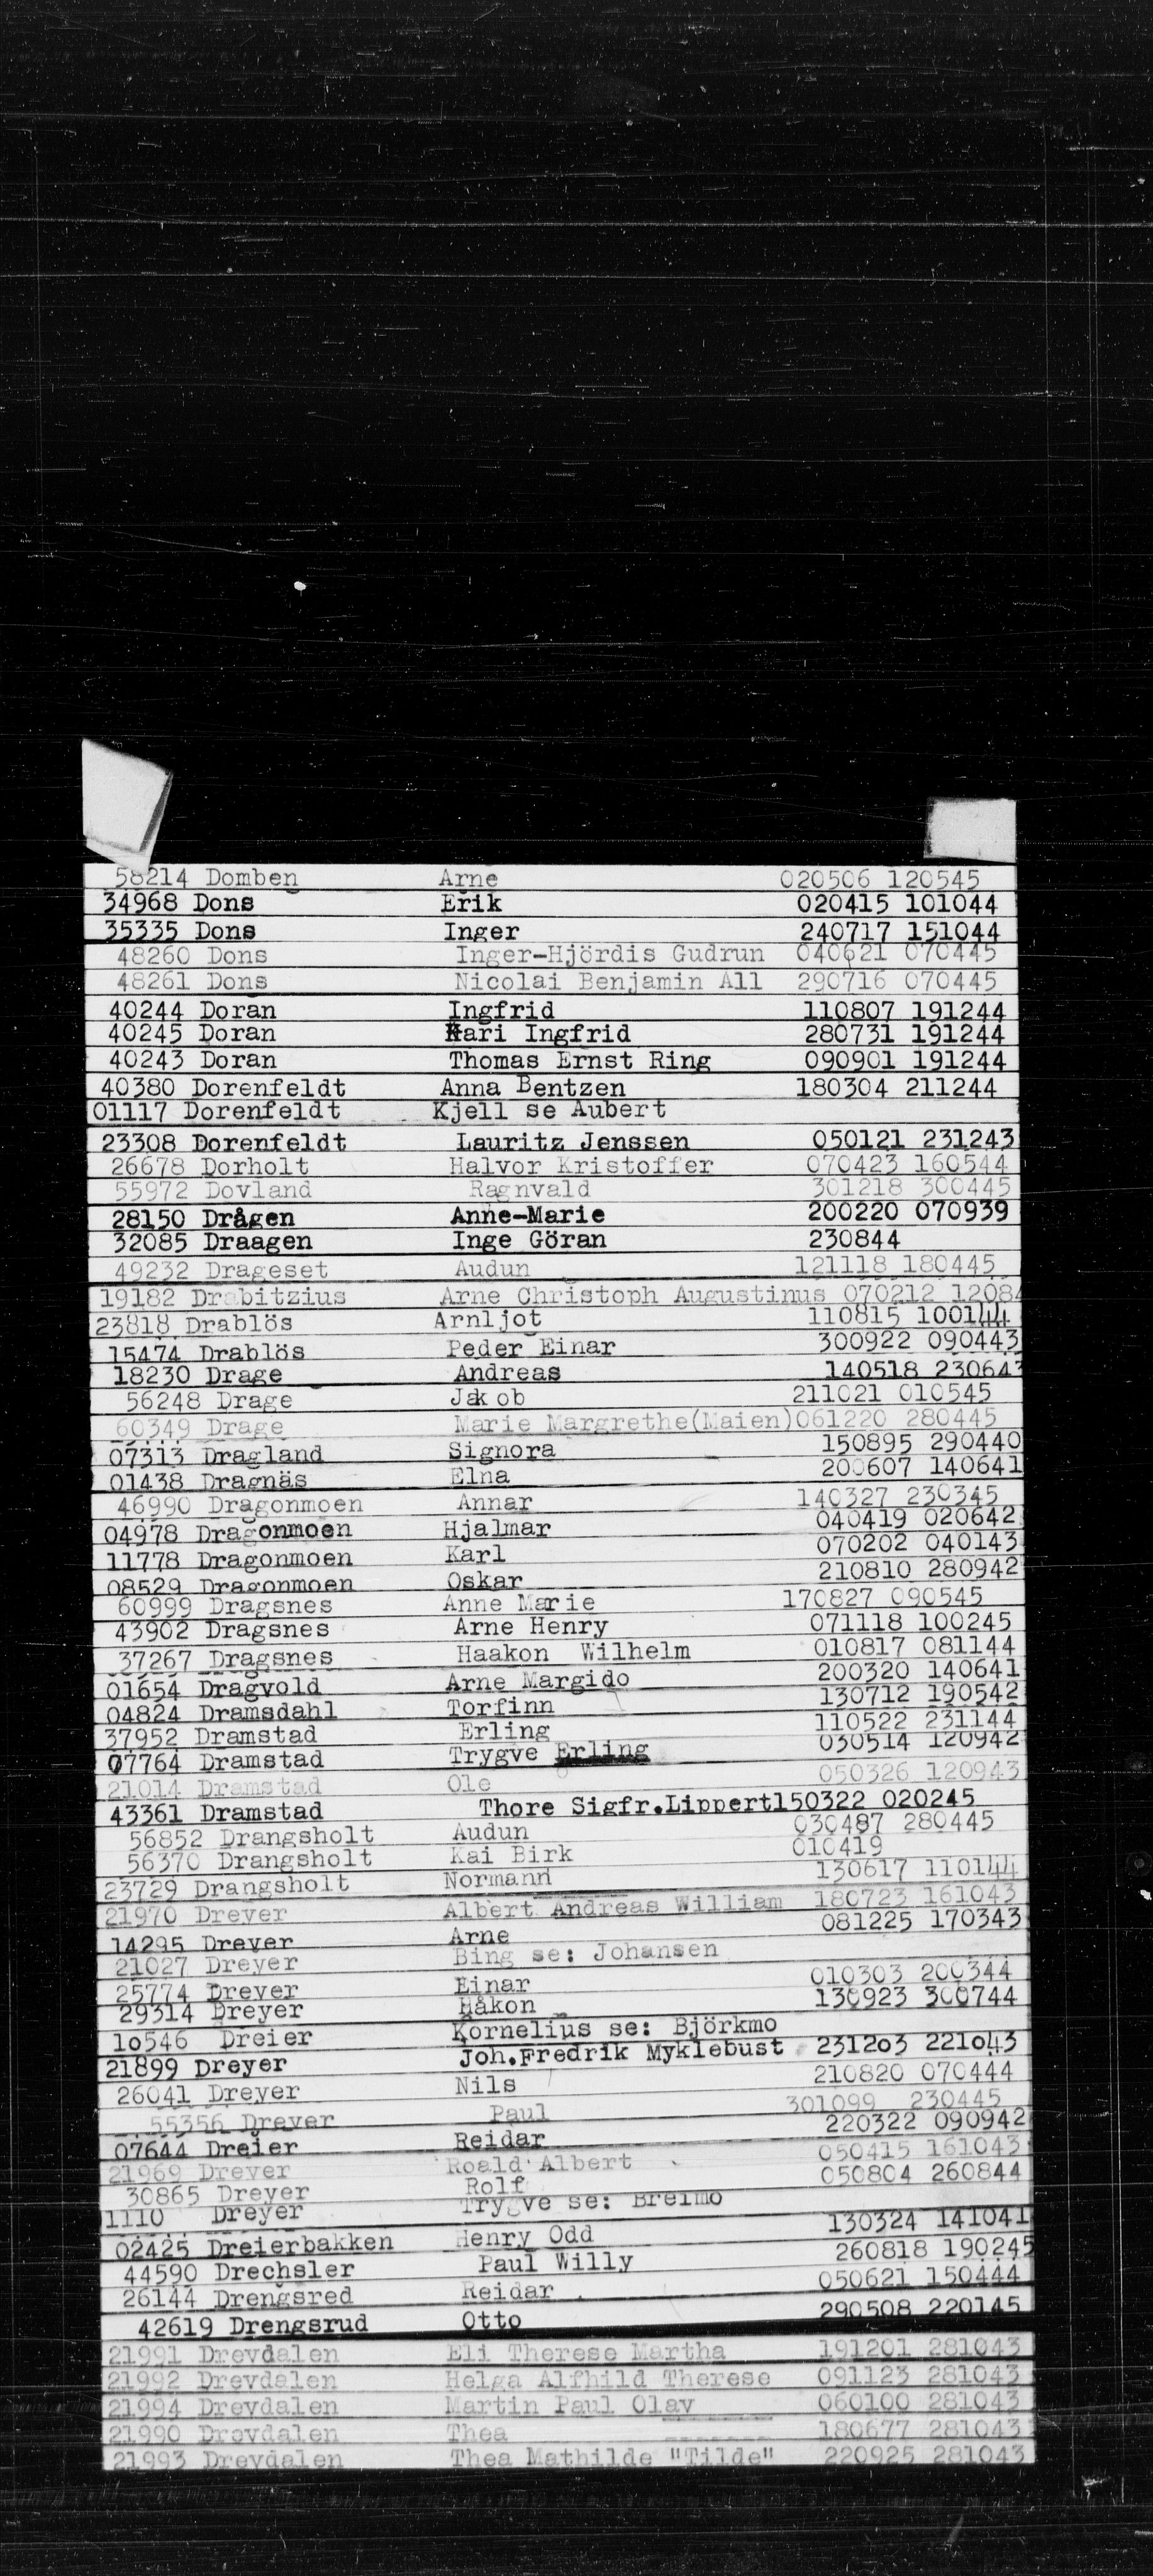 58214 Domben Arne 020506 120545
34968 Dons Erik 020415 101044
35335 Dons Inger 240717 151044
48260 Dons Inger-Hjördis Gudrun 040621 070445
48261 Dons Nicolai Benjamin All 290716 070445
40244 Doran Ingfrid 110807 191244
40245 Doran Kari Ingfrid 280731 191244
40243 Doran Thomas Ernst Ring 090901 191244
40380 Dorenfeldt Anna Bentzen 180304 211244
01117 Dorenfeldt Kjell se Aubert
23308 Dorenfeldt Lauritz Jenssen 050121 231243
26678 Dorholt Halvor Kristoffer 070423 160544
55972 Dovland Ragnvald 301218 300445
28150 Drågen Anne-Marie 200220 070939
32085 Draagen Inge Göran 230844
49232 Drageset Audun 121118 180445
19182 Drabitzius Arne Christoph Augustinus 070212 12084
23818 Drablös Arnljot 110815 100144
15474 Drablös Peder Einar 300922 090443
18230 Drage Andreas 140518 230643
56248 Drage Jakob 211021 010545
60349 Drage Marie Margrethe(Maien)061220 280445
07313 Dragland Signora 150895 290440
01438 Dragnäs Elna 200607 140641
46990 Dragonmoen Annar 140327 230345
04978 Dragonmoen Hjalmar 040419 020642
11778 Dragonmoen Karl 070202 040143
08529 Dragonmoen Oskar 210810 280942
60999 Dragsnes Anne Marie 170827 090545
43902 Dragsnes Arne Henry 071118 100245
37267 Dragsnes Haakon Wilhelm 010817 081144
01654 Dragvold Arne Margido 200320 140641
04824 Dramsdahl Torfinn 130712 190542
37952 Dramstad Erling 110522 231144
07764 Dramstad Trygve Erling 030514 120942
21014 Dramstad Ole 050326 120943
43361 Dramstad Thore Sigfr.Lippert150322 020245
56852 Drangsholt Audun 030487 280445
56370 Drangsholt Kai Birk 010419
23729 Drangsholt Normann 130617 110144
21970 Dreyer Albert Andreas William 180723 161043
14295 Dreyer Arne 081225 170343
21027 Dreyer Bing se: Johansen
25774 Dreyer Einar 010303 200344
29314 Dreyer Håkon 130923 300744
10546 Dreier Kornelius se: Björkmo
21899 Dreyer Joh.Fredrik Myklebust 231203 221043
26041 Dreyer Nils 210820 070444
55356 Dreyer Paul 301099 230445
07644 Dreier Reidar 220322 090942
21969 Dreyer Roald Albert 050415 161043
30865 Dreyer Rolf 050804 260844
1110 Dreyer Trygve se: Breimo
02425 Dreierbakken Henry Odd 130324 141041
44590 Drechsler Paul Willy 260818 190245
26144 Drengsred Reidar 050621 150444
42619 Drengsrud Otto 290508 220145
21991 Drevdalen Eli Therese Martha 191201 281043
21992 Drevdalen Helga Alfhild Therese 091123 281043
21994 Drevdalen Martin Paul Olav 060100 281043
21990 Drevdalen Thea 180677 281043
21993 Drevdalen Thea Mathilde "Tilde" 220925 281043